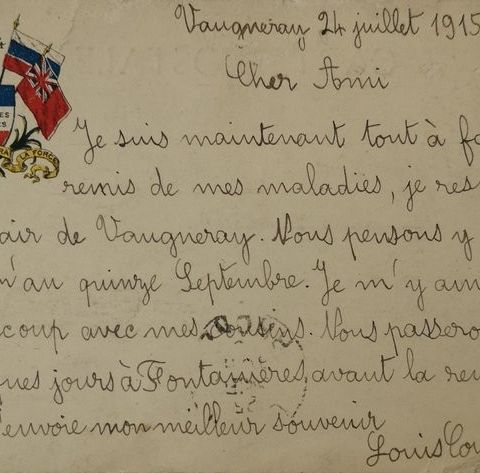 Vaugneray 24 juillet 1915
Cher Ami
Je suis maintenant tout à fa
remis de mes maladies, je res
air de Vaugneray. Nous pensons y
'au quinze Septembre. Je m'y am
coup avec mes cousins. Nous passero
ques jours à Fontanières, avant la ren
'envoie mon meilleur souvenir
Louis Cou
LA FORCE